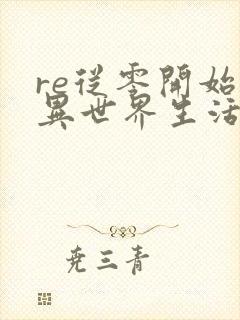 re從零開始
異世界生活
堯三青